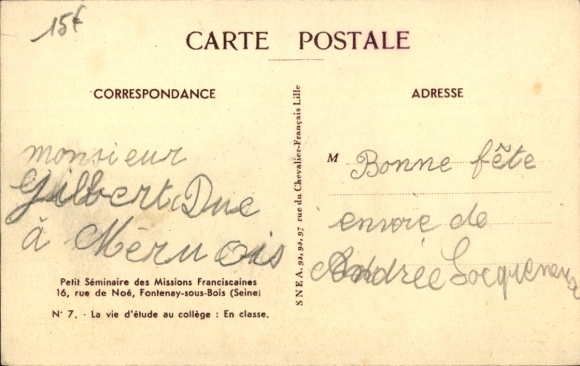 15f
CARTE POSTALE
CORRESPONDANCE
monsieur
Gilbert Duc
à
Petit Séminaire des Missions Franciscaines
16, rue de Noé, Fontenay-sous-Bois (Seine)
N° 7. - La vie d'étude au collège : En classe.
S.N.E.A. rue du Chevalier-Français Lille
ADRESSE
M Bonne fête
envoie de
Andrée